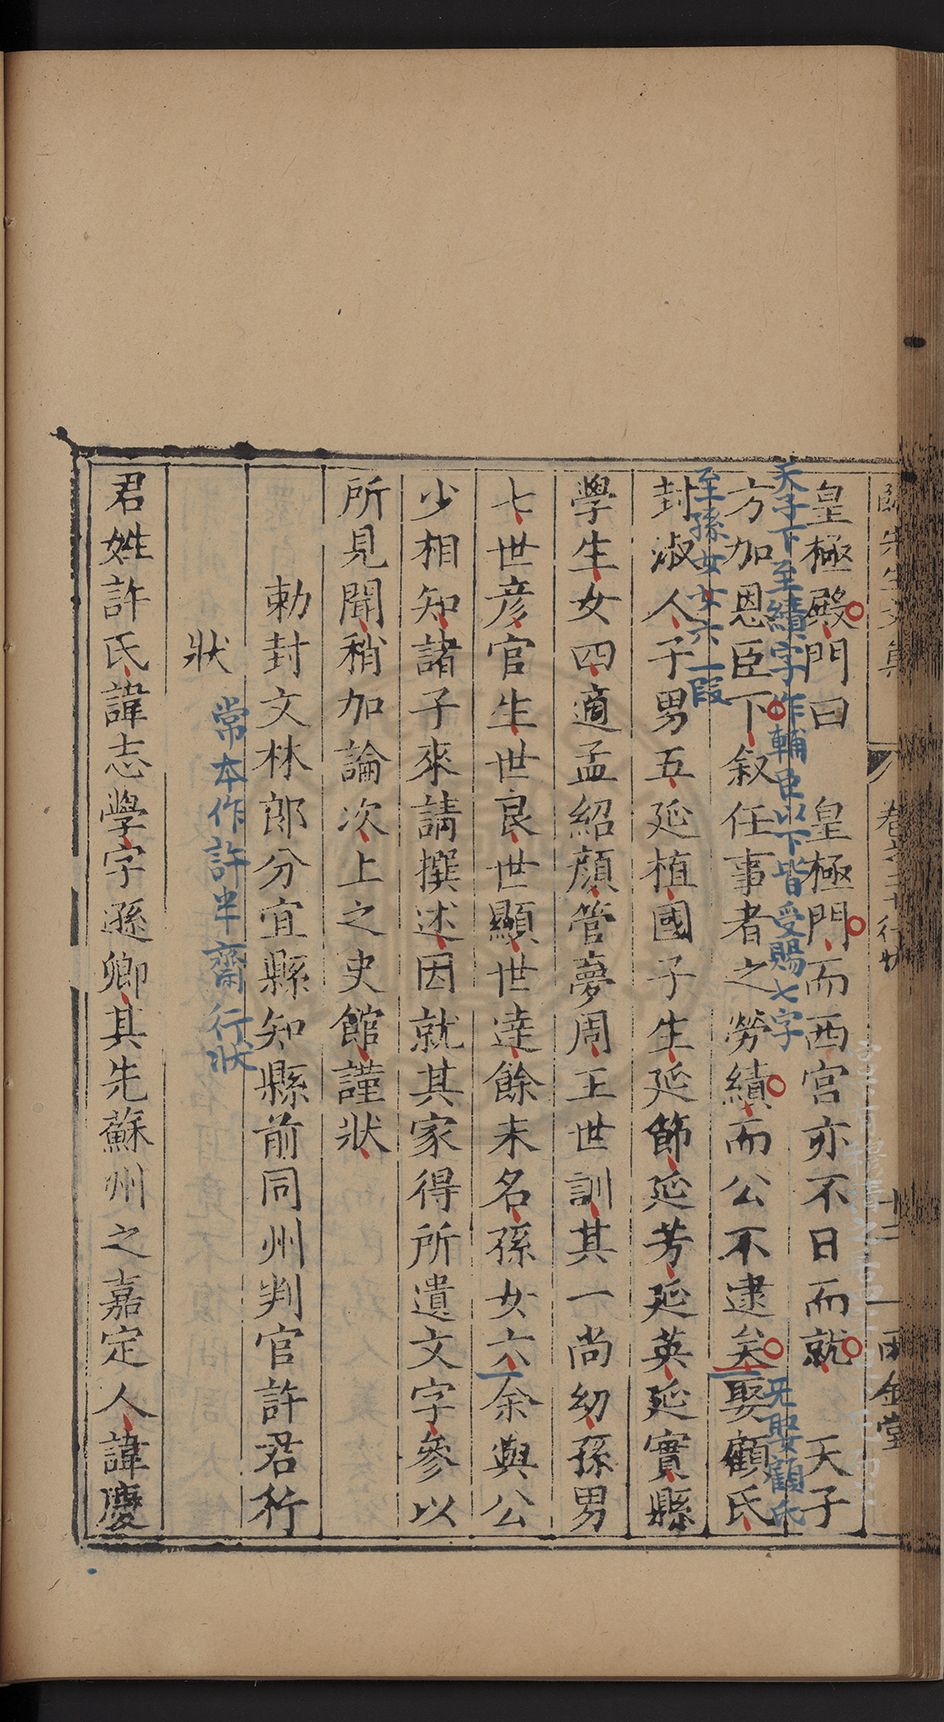 皇極殿門曰　皇極門而西宮亦不日而就　天子
天子下至績字作輔臣以下皆受賜七字
方加恩臣下叙任事者之勞績而公不逮矣娶顧氏
无娶顧氏
至孫女女六一段
封淑人子男五延植國子生延節延芳延英延實縣
學生女四適孟紹顏管夢周王世訓其一尚幼孫男
七世彥官生世良世顯世達餘未名孫女六余與公
少相知諸子來請撰述因就其家得所遺文字參以
所見聞稍加論次上之史館謹狀
勅封文林郎分宜縣知縣前同州判官許君行
常本作許半齋行狀
狀
君姓許氏諱志學字遜卿其先蘇州之嘉定人諱慶